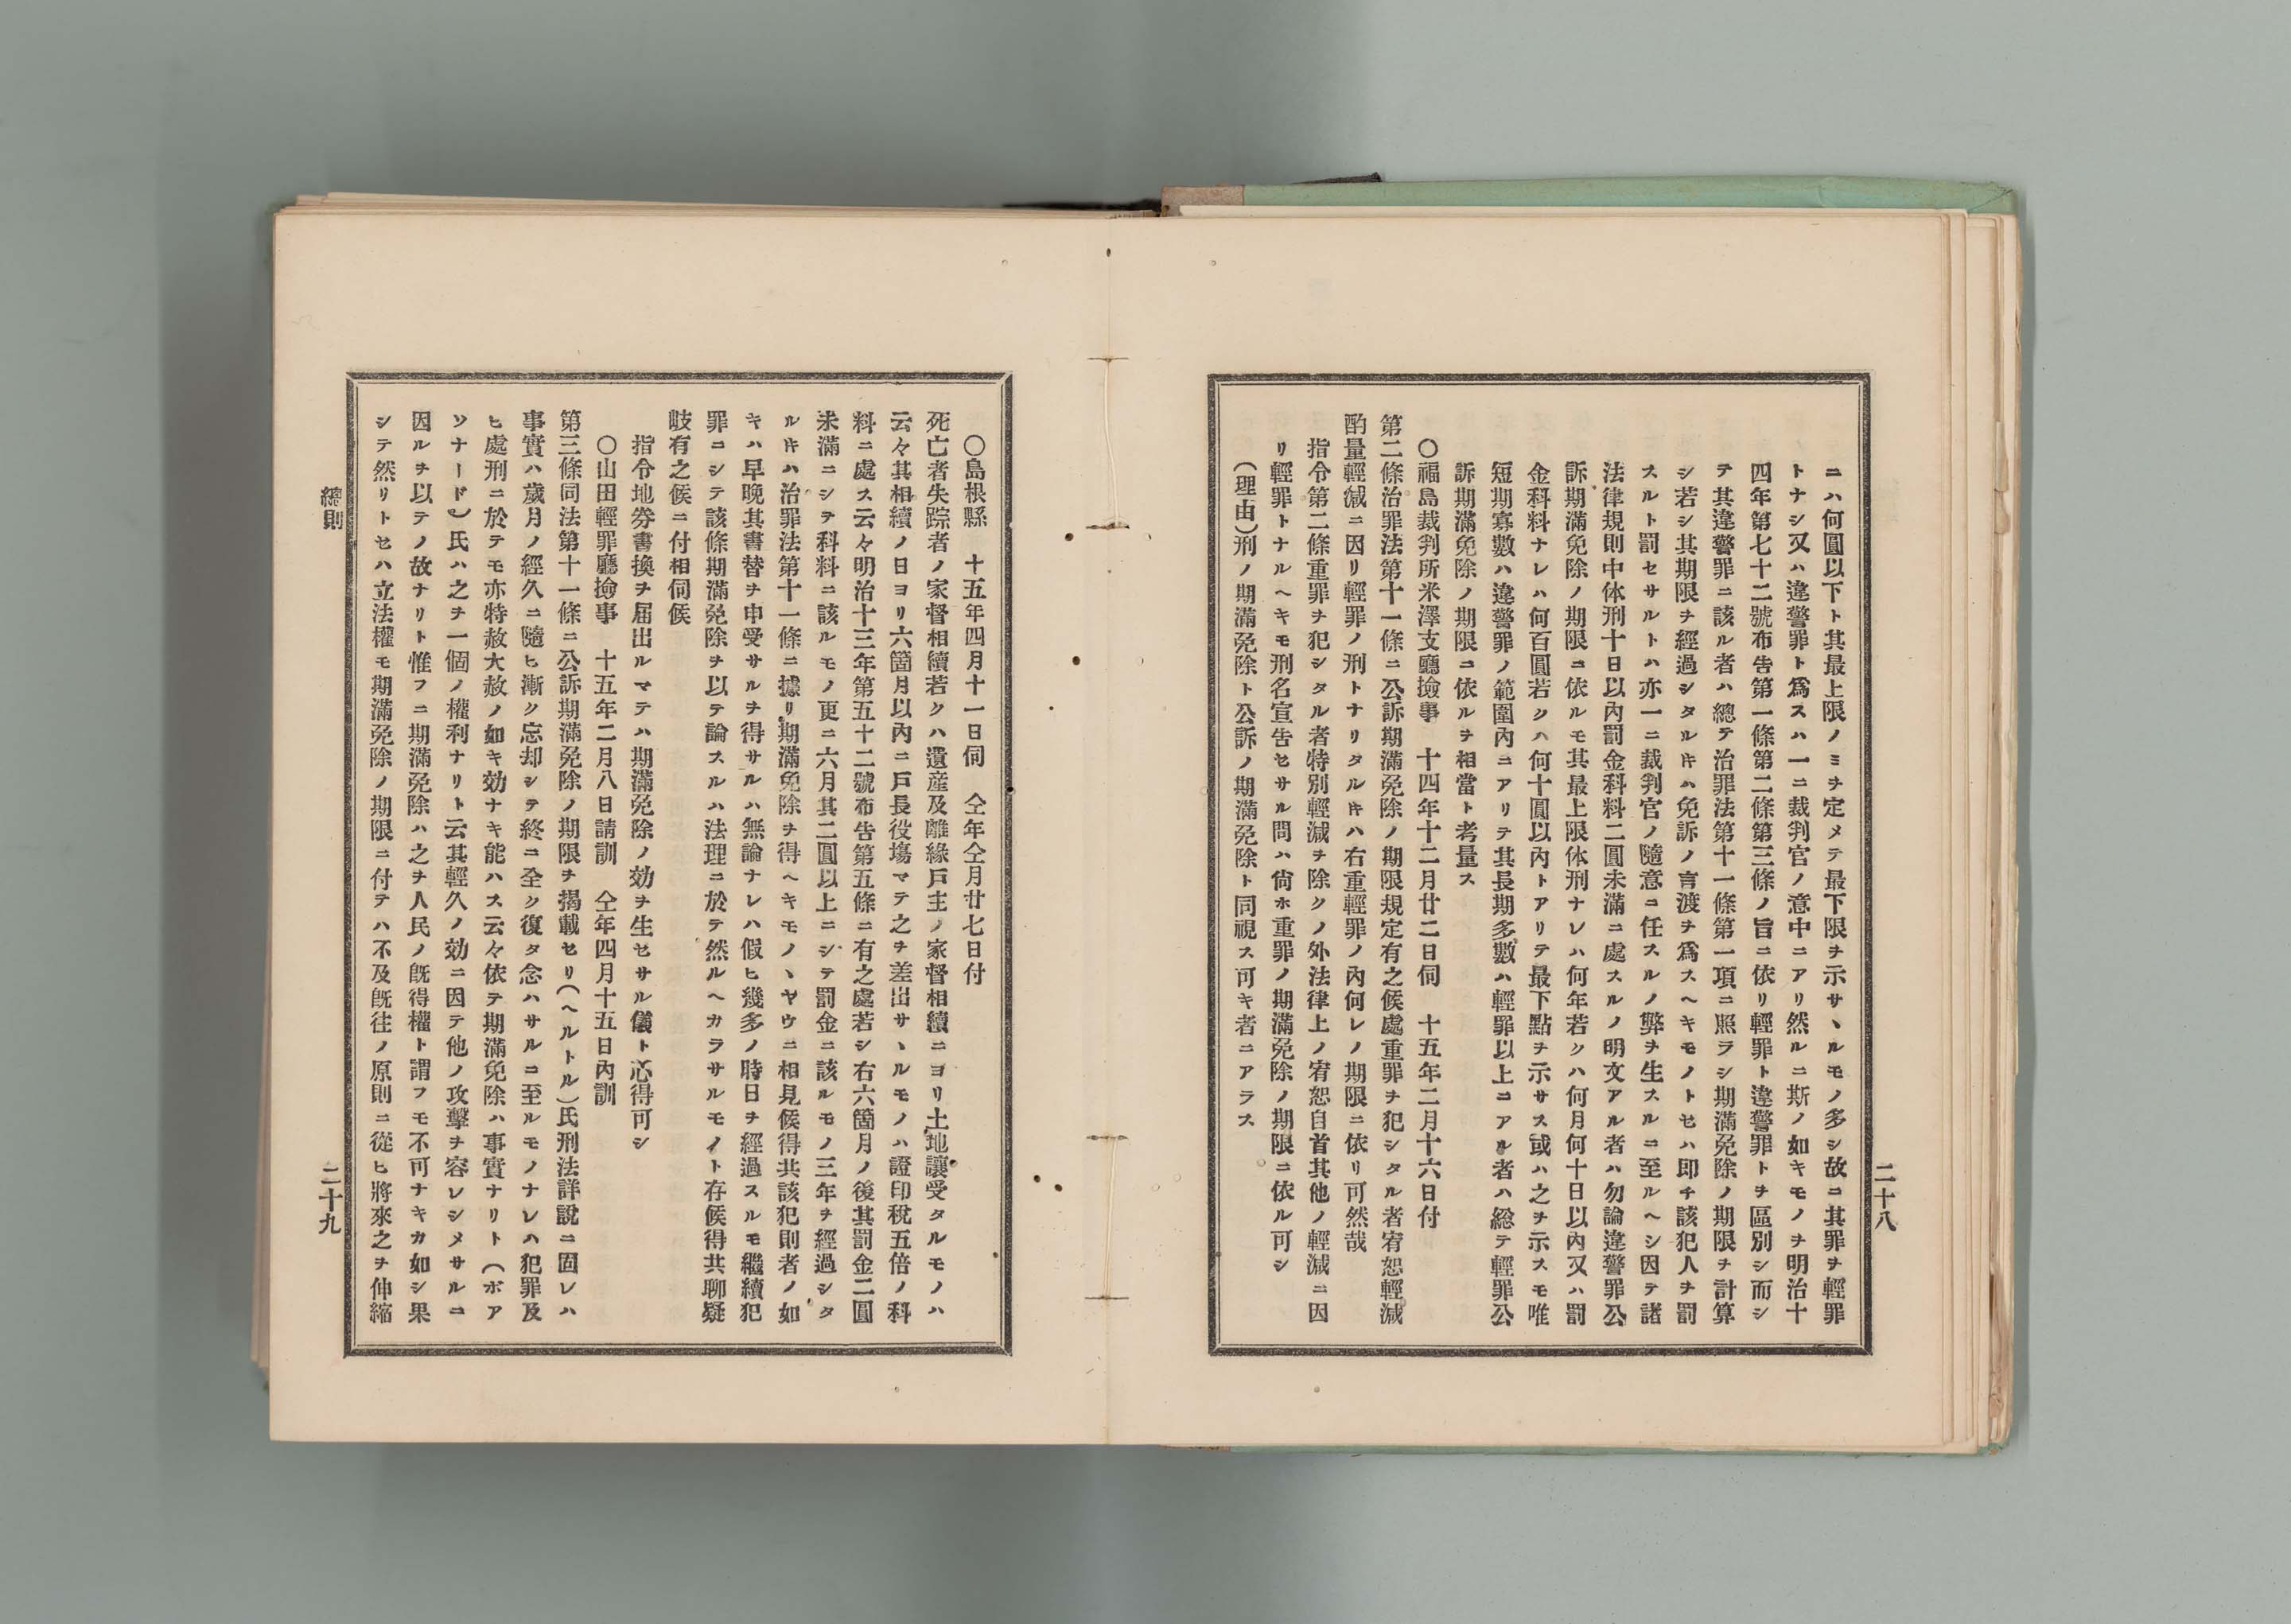 二十八
ニハ何圓以下ト其最上限ノミヲ定メテ最下限ヲ示サヽルモノ多シ故ニ其罪ヲ輕罪
トナシ又ハ違警罪ト爲スハ一ニ裁判官ノ意中ニアリ然ルニ斯ノ如キモノヲ明治十
四年第七十二號布告第一條第二條第三條ノ旨ニ依リ輕罪ト違警罪トヲ區別シ而シ
テ其違警罪ニ該ル者ハ總テ治罪法第十一條第一項ニ照ラシ期滿免除ノ期限ヲ計算
シ若シ其期限ヲ經過シタルキハ免訴ノ言渡ヲ爲スヘキモノトセハ即チ該犯人ヲ罰
スルト罰セサルトハ亦一ニ裁判官ノ隨意ニ任スルノ弊ヲ生スルニ至ルヘシ因テ諸
法律規則中体刑十日以內罰金科料二圓未滿ニ處スルノ明文アル者ハ勿論違警罪公
訴期滿免除ノ期限ニ依ルモ其最上限体刑ナレハ何年若クハ何月何十日以內又ハ罰
金科料ナレハ何百圓若クハ何十圓以內トアリテ最下點ヲ示サス或ハ之ヲ示スモ唯
短期寡數ハ違警罪ノ範圍內ニアリテ其長期多數ハ輕罪以上ニアル者ハ総テ輕罪公
訴期滿免除ノ期限ニ依ルヲ相當ト考量ス
〇福島裁判所米澤支廳撿事　十四年十二月廿二日伺　十五年二月十六日付
第二條治罪法第十一條ニ公訴期滿免除ノ期限規定有之候處重罪ヲ犯シタル者宥恕輕減
酌量輕減ニ因リ輕罪ノ刑トナリタルキハ右重輕罪ノ內何レノ期限ニ依リ可然哉
指令第二條重罪ヲ犯シタル者特別輕減ヲ除クノ外法律上ノ宥恕自首其他ノ輕減ニ因
リ輕罪トナルヘキモ刑名宣告セサル間ハ尙ホ重罪ノ期滿免除ノ期限ニ依ル可シ
（理由）刑ノ期滿免除ト公訴ノ期滿免除ト同視ス可キ者ニアラス
〇島根縣　十五年四月十一日伺　仝年仝月廿七日付
死亡者失踪者ノ家督相續若クハ遺産及離緣戶主ノ家督相續ニヨリ土地讓受タルモノハ
云々其相續ノ日ヨリ六箇月以內ニ戶長役塲マテ之ヲ差出サヽルモノハ證印稅五倍ノ科
料ニ處ス云々明治十三年第五十二號布告第五條ニ有之處若シ右六箇月ノ後其罰金二圓
未滿ニシテ科料ニ該ルモノ更ニ六月其二圓以上ニシテ罰金ニ該ルモノ三年ヲ經過シタ
ルキハ治罪法第十一條ニ據リ期滿免除ヲ得ヘキモノヽヤウニ相見候得共該犯則者ノ如
キハ早晩其書替ヲ申受サルヲ得サルハ無論ナレハ假ヒ幾多ノ時日ヲ經過スルモ繼續犯
罪ニシテ該條期滿免除ヲ以テ論スルハ法理ニ於テ然ルヘカラサルモノト存候得共聊疑
岐有之候ニ付相伺候
指令地券書換ヲ屆出ルマテハ期滿免除ノ効ヲ生セサル儀ト心得可シ
〇山田輕罪廳撿事　十五年二月八日請訓　仝年四月十五日內訓
第三條同法第十一條ニ公訴期滿免除ノ期限ヲ揭載セリ（ヘルトル）氏刑法詳説ニ固レハ
事實ハ歲月ノ經久ニ隨ヒ漸ク忘却シテ終ニ全ク復タ念ハサルニ至ルモノナレハ犯罪及
ヒ處刑ニ於テモ亦特赦大赦ノ如キ効ナキ能ハス云々依テ期滿免除ハ事實ナリト（ボア
ソナード）氏ハ之ヲ一個ノ權利ナリト云其輕久ノ効ニ因テ他ノ攻擊ヲ容レシメサルニ
因ルヲ以テノ故ナリト惟フニ期滿免除ハ之ヲ人民ノ既得權ト謂フモ不可ナキカ如シ果
シテ然リトセハ立法權モ期滿免除ノ期限ニ付テハ不及既往ノ原則ニ從ヒ將來之ヲ伸縮
總則
二十九